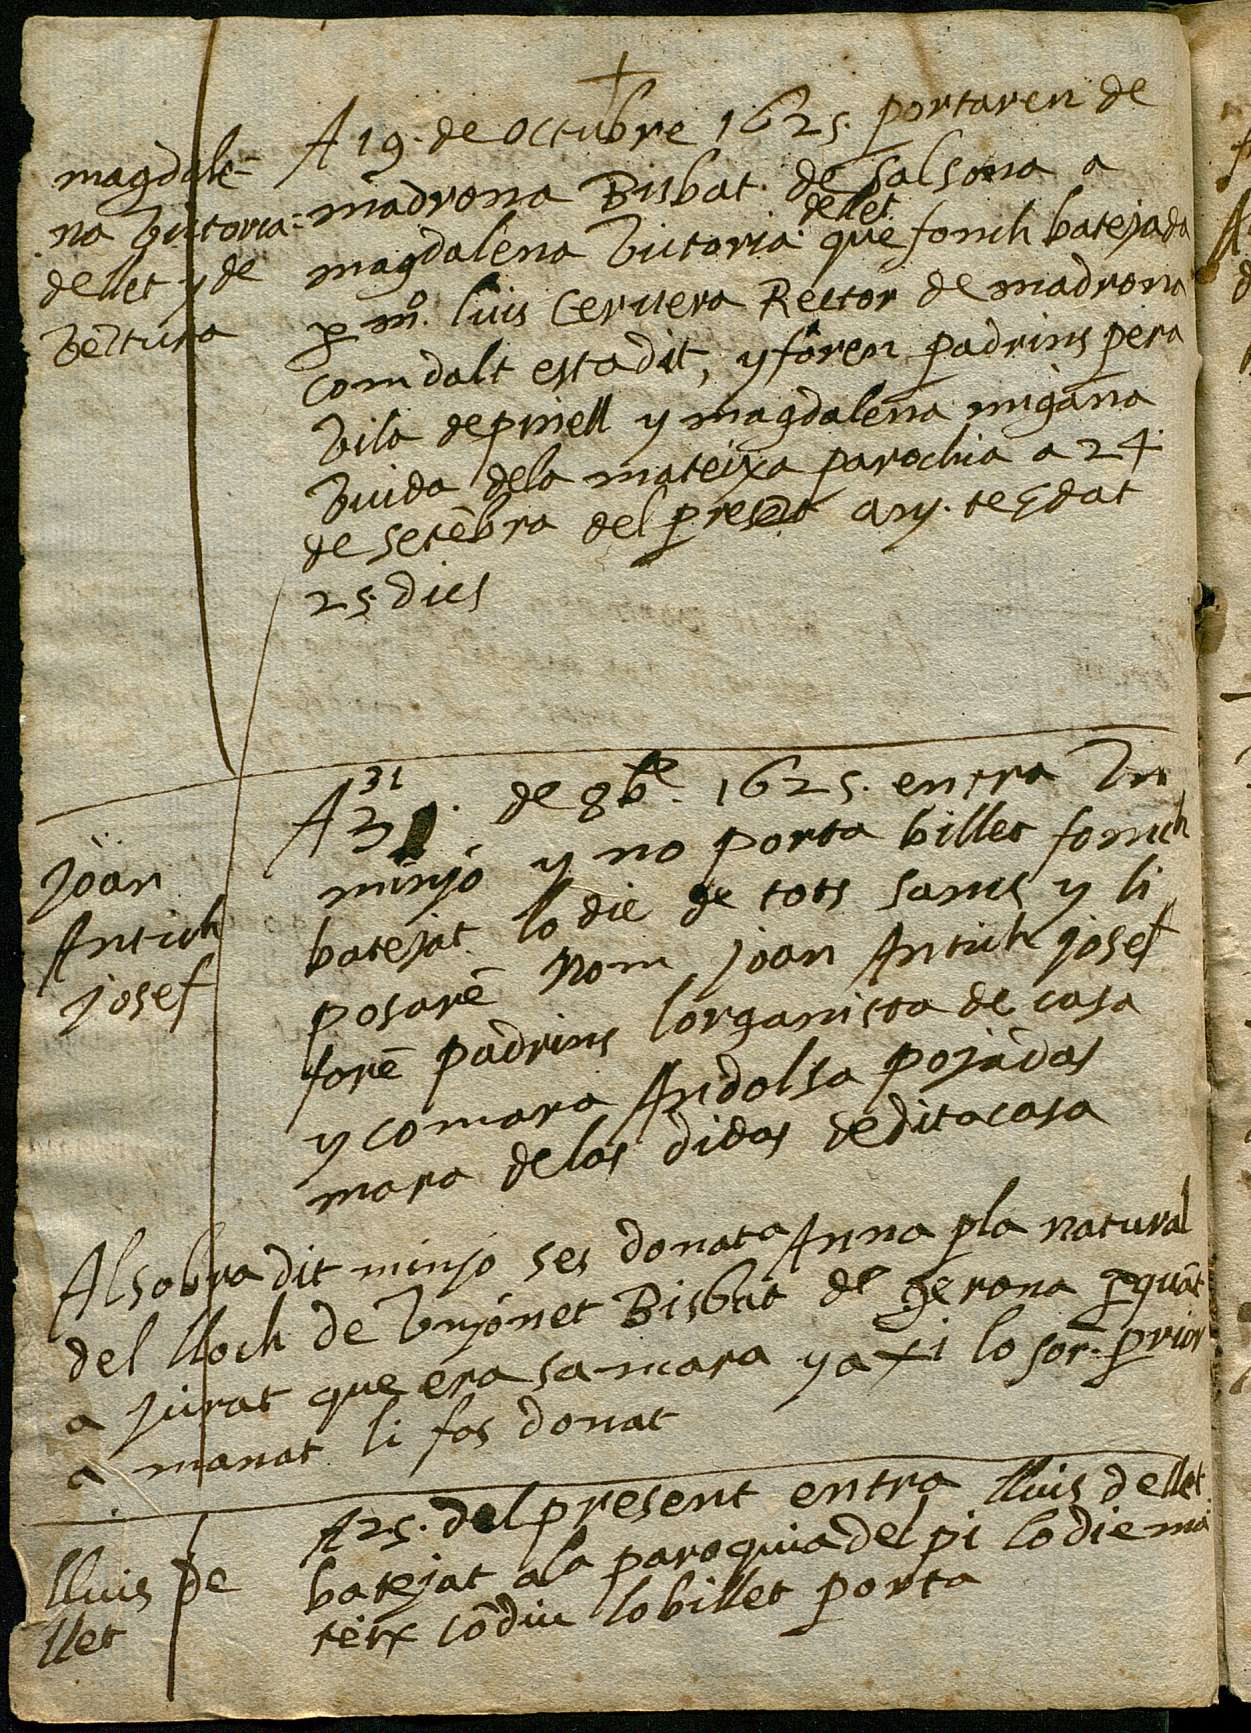 magdale-
na victoria
de llet y de
ventura
A 19. de octubre 1625. portaren de
madrona Bisbat. de salsona a
magdalena victoria de llet que fonch batejada
p mº. luis Cervera Rector de madrona
com dalt esta dit, y foren padrins pera
vila de pinell y magdalena migana
viuda dela mateixa parochia a 24.
de setēbra del present any. te edat
25. dies
Joan
Antich
josef
A 31 . de 8bᵉ. 1625. entra vn
minjo y no porta billet fonch
batejat lo die de tots sants y li
posarē nom joan Antich josef
forē padrins lorganista de casa
y comara Andolsa pojadas
mara de las didas de dita casa
Al sobra dit minjo ses donata Anna pla natural
del lloch de vnjonet Bisbat de gerona p quāt
a jurat que era sa mara y axi lo sor. prior
a manat li fos donat
lluis de
llet
A 25. del present entra lluis de llet
batejat ala paroquia del pi lo die ma
teix cō diu lo billet porta